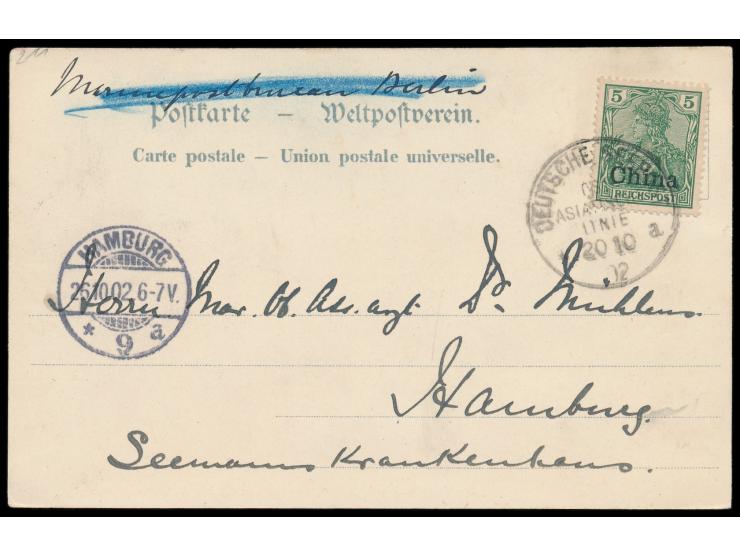 211
Marinepostbureau Berlin
Postkarte – Weltpostverein.
Carte postale – Union postale universelle.
5 5
China
REICHSPOST
DEUTSCHE SEEPOST
OST
ASIATISCHE
LINIE
* 20 10 a
02
HAMBURG
26.10.02.6-7V.
* 9 a
Herrn Mar. Ob. Ass. arzt Dr. Mühlens.
Hamburg.
Seemanns Krankenhaus.